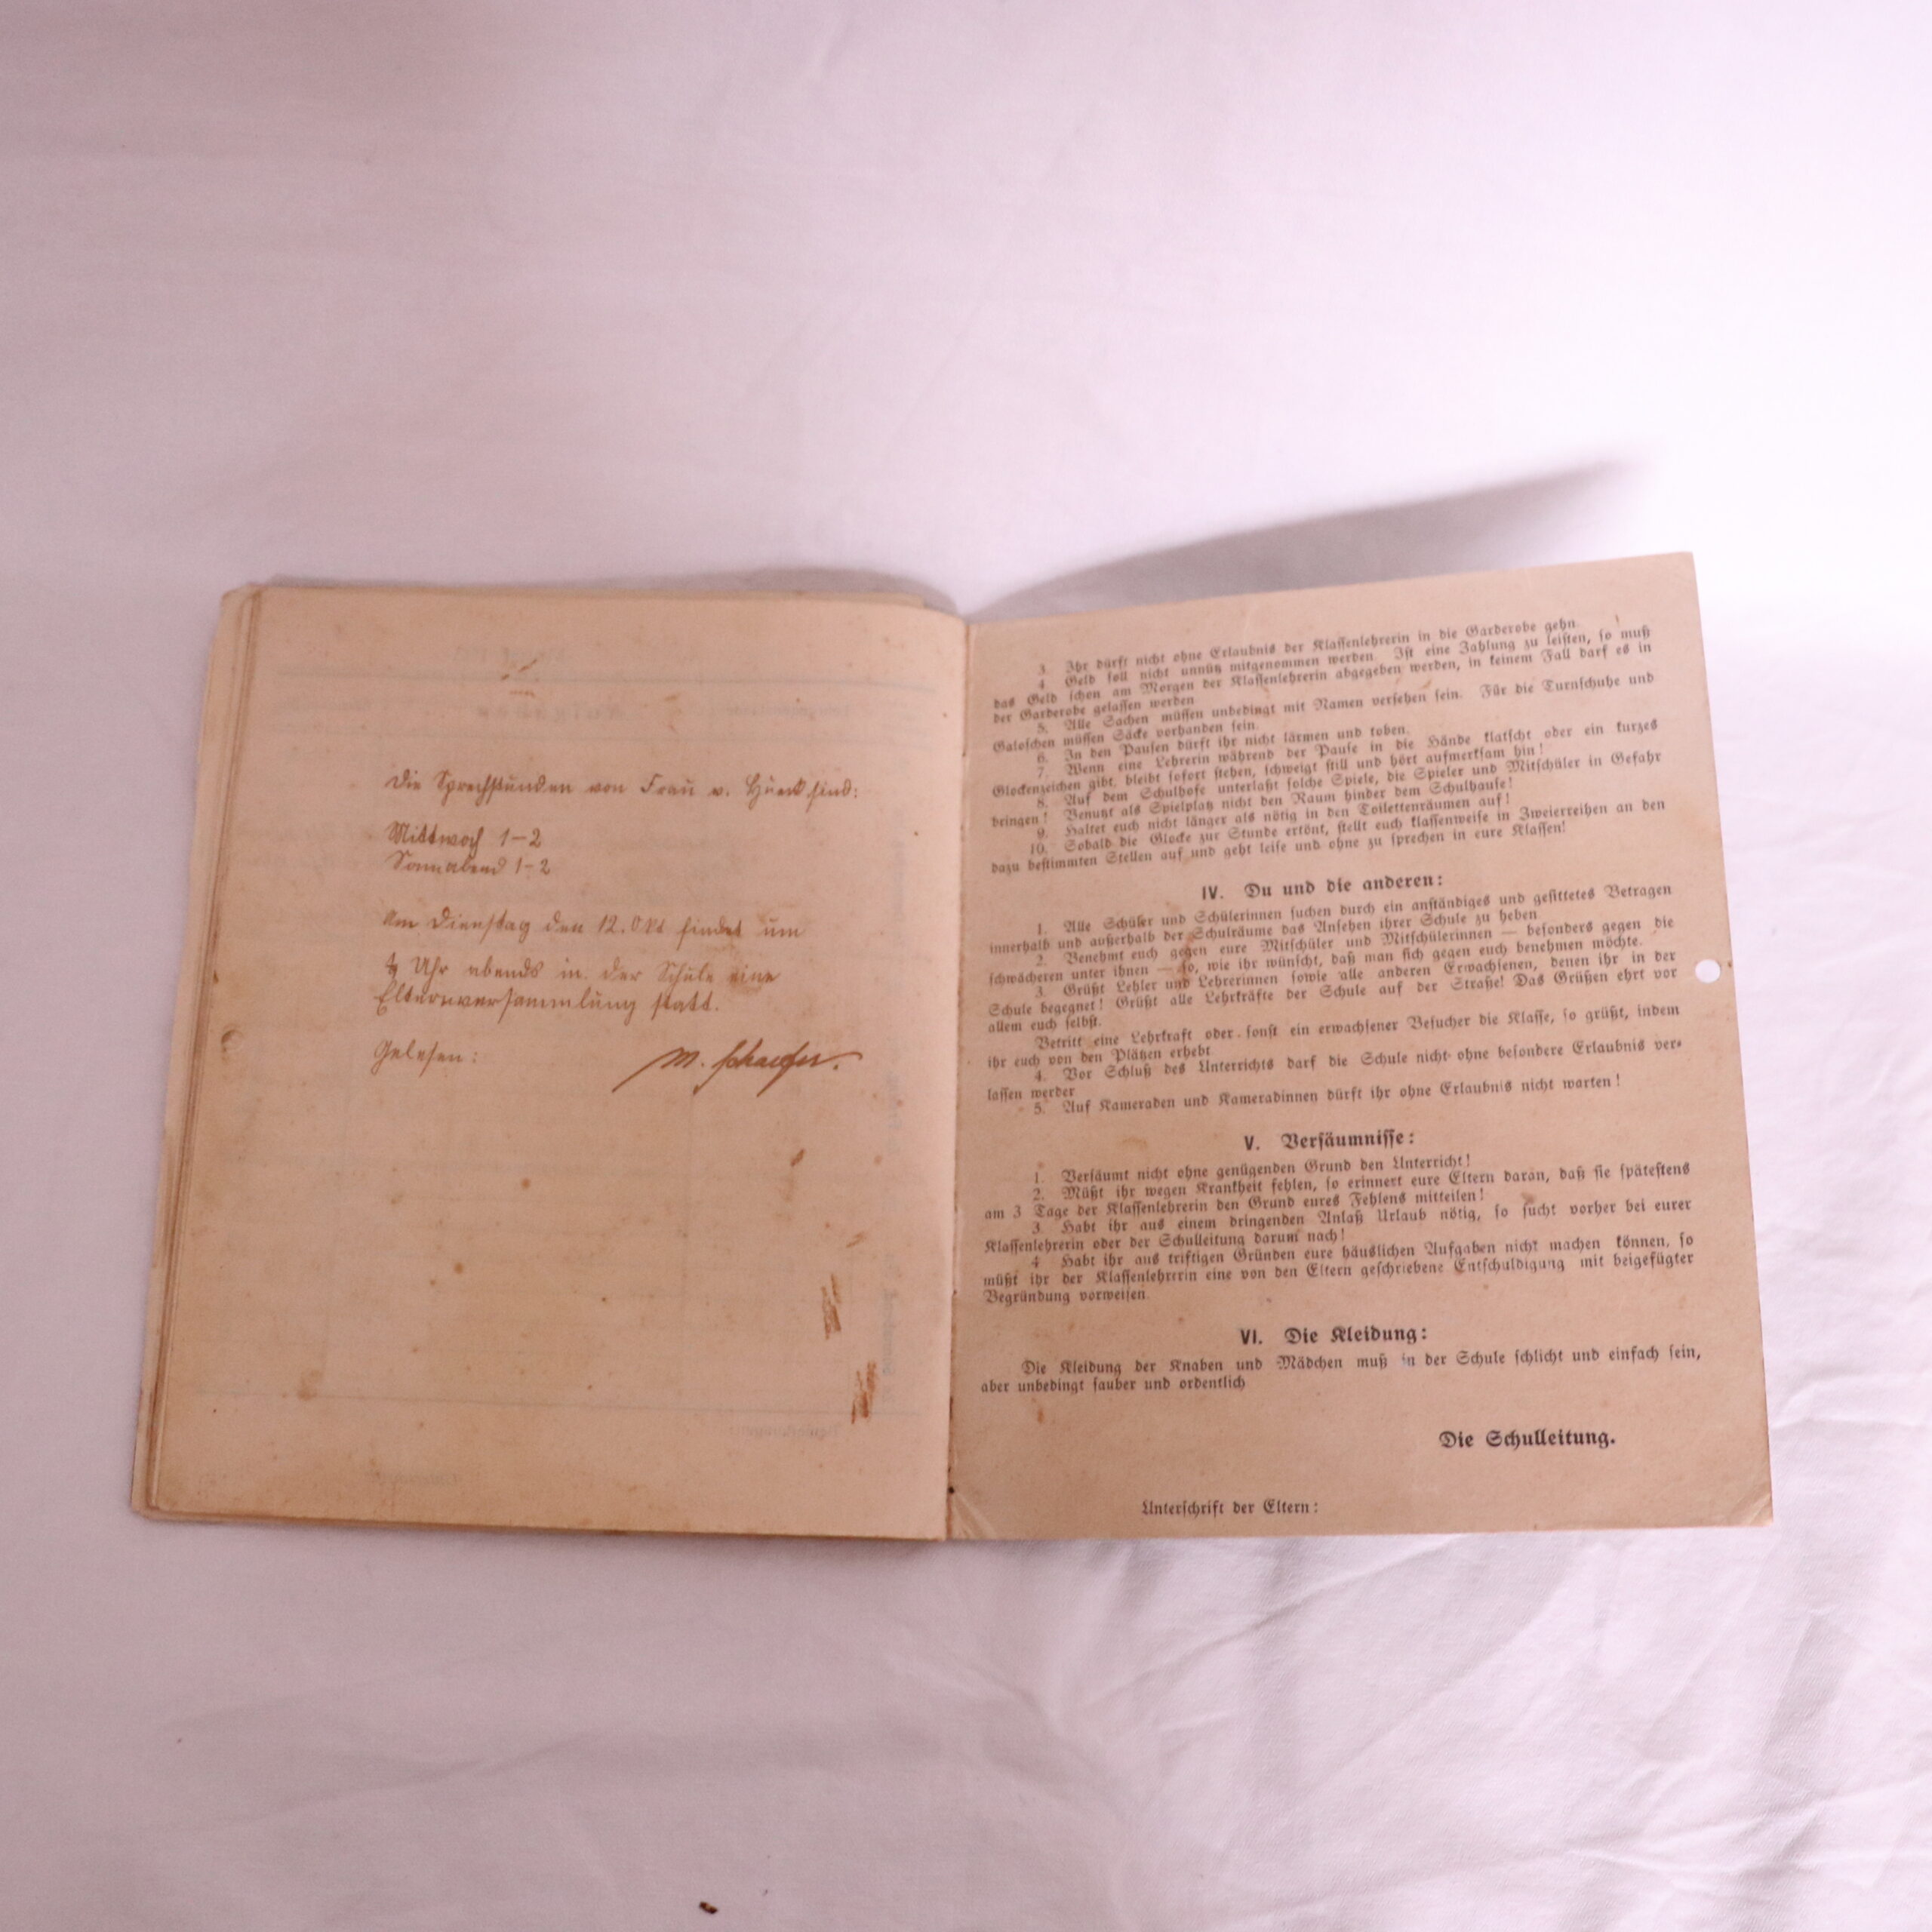 Die Sprechstunden von Frau v. Hueck sind:
Mittwoch 1-2
Sonnabend 1-2
Am Dienstag den 12. Okt findet um
Uhr abends in der Schule eine
Elternversammlung statt.
Gelesen: M. Schaefer.
3 Ihr dürft nicht ohne Erlaubnis der Klassenlehrerin in die Garderobe gehn.
4 Geld soll nicht unnütz mitgenommen werden Ist eine Zahlung zu leisten, so muß
das Geld schon am Morgen der Klassenlehrerin abgegeben werden, in keinem Fall darf es in
der Garderobe gelassen werden
5. Alle Sachen müssen unbedingt mit Namen versehen sein. Für die Turnschuhe und
Galoschen müssen Säcke vorhanden sein.
6. In den Pausen dürft ihr nicht lärmen und toben.
7. Wenn eine Lehrerin während der Pause in die Hände klatscht oder ein kurzes
Glockenzeichen gibt, bleibt sofort stehen, schweigt still und hört aufmerksam hin!
8. Auf dem Schulhofe unterlaßt solche Spiele, die Spieler und Mitschüler in Gefahr
bringen! Benutzt als Spielplatz nicht den Raum hinder dem Schulhause!
9. Haltet euch nicht länger als nötig in den Toilettenräumen auf!
10. Sobald die Glocke zur Stunde ertönt, stellt euch klassenweise in Zweierreihen an den
dazu bestimmten Stellen auf und geht leise und ohne zu sprechen in eure Klassen!
IV. Du und die anderen:
1. Alle Schüler und Schülerinnen suchen durch ein anständiges und gesittetes Betragen
innerhalb und außerhalb der Schulräume das Ansehen ihrer Schule zu heben
2. Benehmt euch gegen eure Mitschüler und Mitschülerinnen — besonders gegen die
schwächeren unter ihnen — so, wie ihr wünscht, daß man sich gegen euch benehmen möchte.
3. Grüßt Lehler und Lehrerinnen sowie alle anderen Erwachsenen, denen ihr in der
Schule begegnet! Grüßt alle Lehrkräfte der Schule auf der Straße! Das Grüßen ehrt vor
allem euch selbst.
Betritt eine Lehrkraft oder sonst ein erwachsener Besucher die Klasse, so grüßt, indem
ihr euch von den Plätzen erhebt
4. Vor Schluß des Unterrichts darf die Schule nicht ohne besondere Erlaubnis ver-
lassen werder
5. Auf Kameraden und Kameradinnen dürft ihr ohne Erlaubnis nicht warten!
V. Versäumnisse:
1. Versäumt nicht ohne genügenden Grund den Unterricht!
2. Müßt ihr wegen Krankheit fehlen, so erinnert eure Eltern daran, daß sie spätestens
am 3 Tage der Klassenlehrerin den Grund eures Fehlens mitteilen!
3. Habt ihr aus einem dringenden Anlaß Urlaub nötig, so sucht vorher bei eurer
Klassenlehrerin oder der Schulleitung darum nach!
4 Habt ihr aus triftigen Gründen eure häuslichen Aufgaben nicht machen können, so
müßt ihr der Klassenlehrerin eine von den Eltern geschriebene Entschuldigung mit beigefügter
Begründung vorweisen.
VI. Die Kleidung:
Die Kleidung der Knaben und Mädchen muß in der Schule schlicht und einfach sein,
aber unbedingt sauber und ordentlich
Die Schulleitung.
Unterschrift der Eltern: